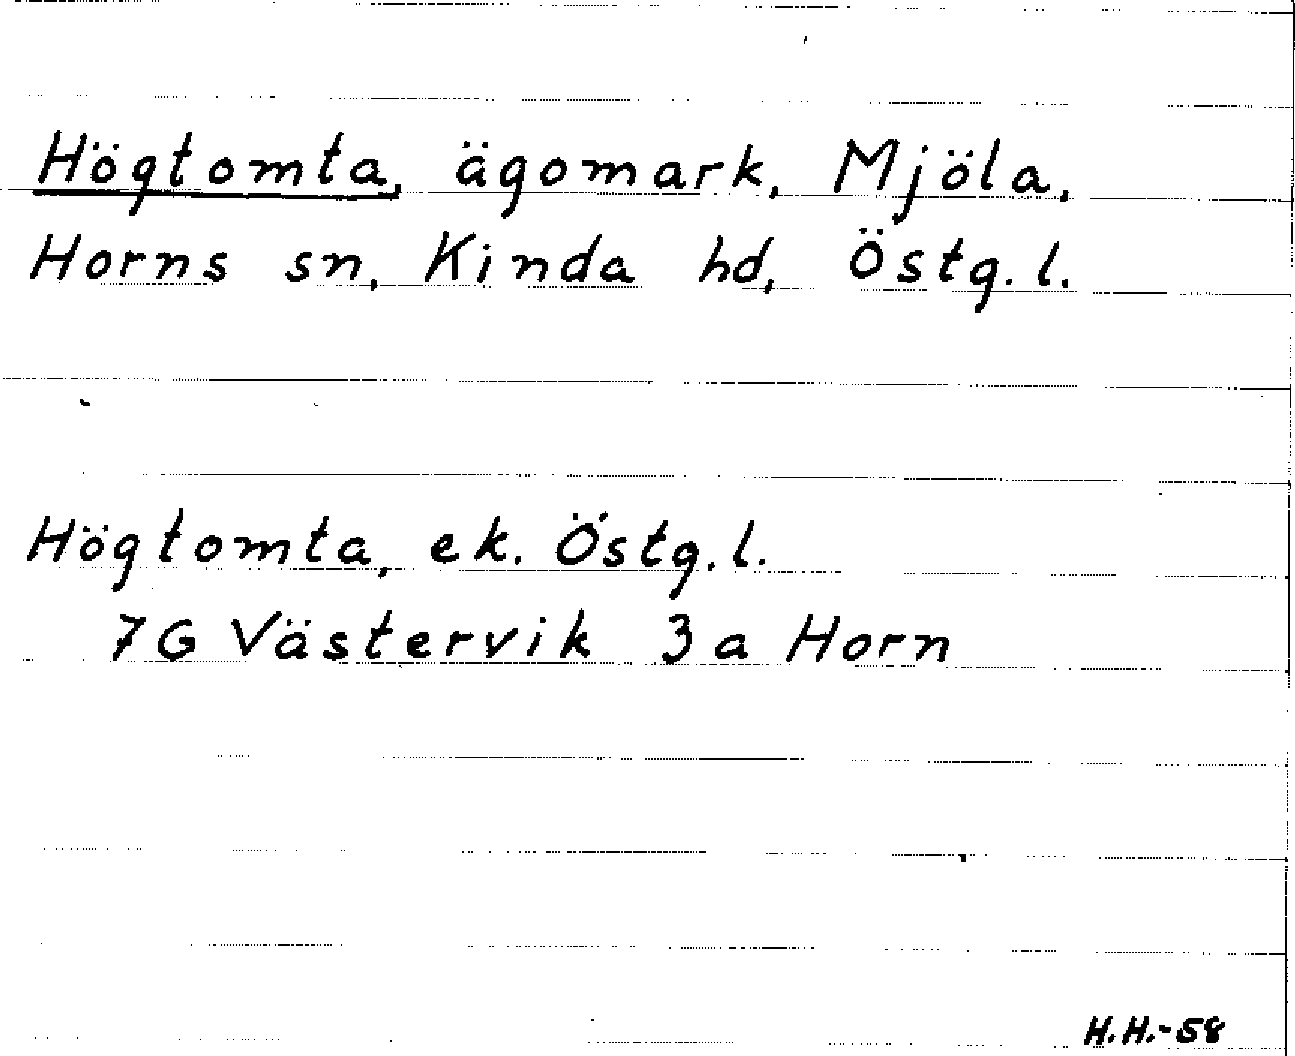 Högtomta, ägomark, Mjöla,
Horns sn, Kinda hd, Östg. l.
Högtomta, ek. Östg. l.
7G Västervik 3a Horn
H.H.-58